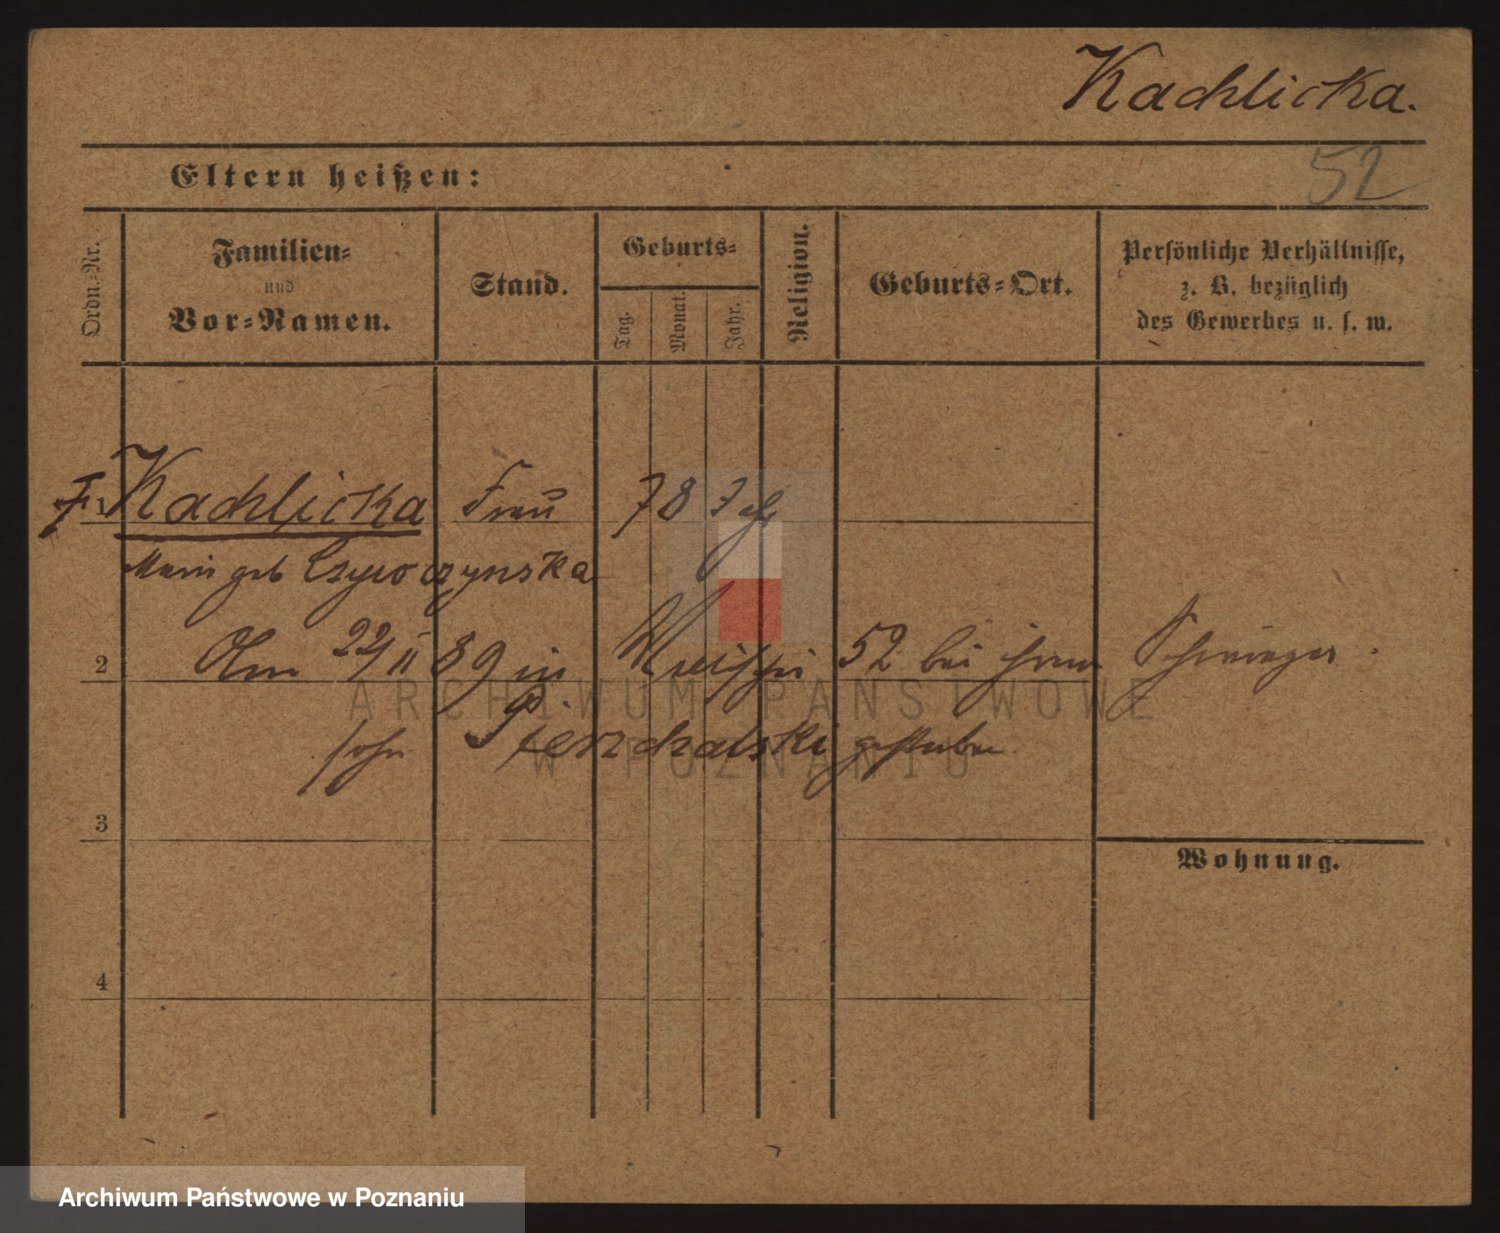 Kachlicka.
Eltern heißen:
52
Ordn.-Nr.
Familien-
und
Vor-Namen.
Stand.
Geburts-
Tag.
Monat.
Jahr.
Religion.
Geburts-Ort.
Persönliche Verhältnisse,
z. B. bezüglich
des Gewerbes u. s. w.
1 Kachlicka Frau 78 Jahr
geb
2 Am 22/II 89 in 52 bei ihrem Schwieger
sohn Pierzchalski gestorben.
3
Wohnung.
4
ARCHIWUM PAŃSTWOWE
W POZNANIU
Archiwum Państwowe w Poznaniu